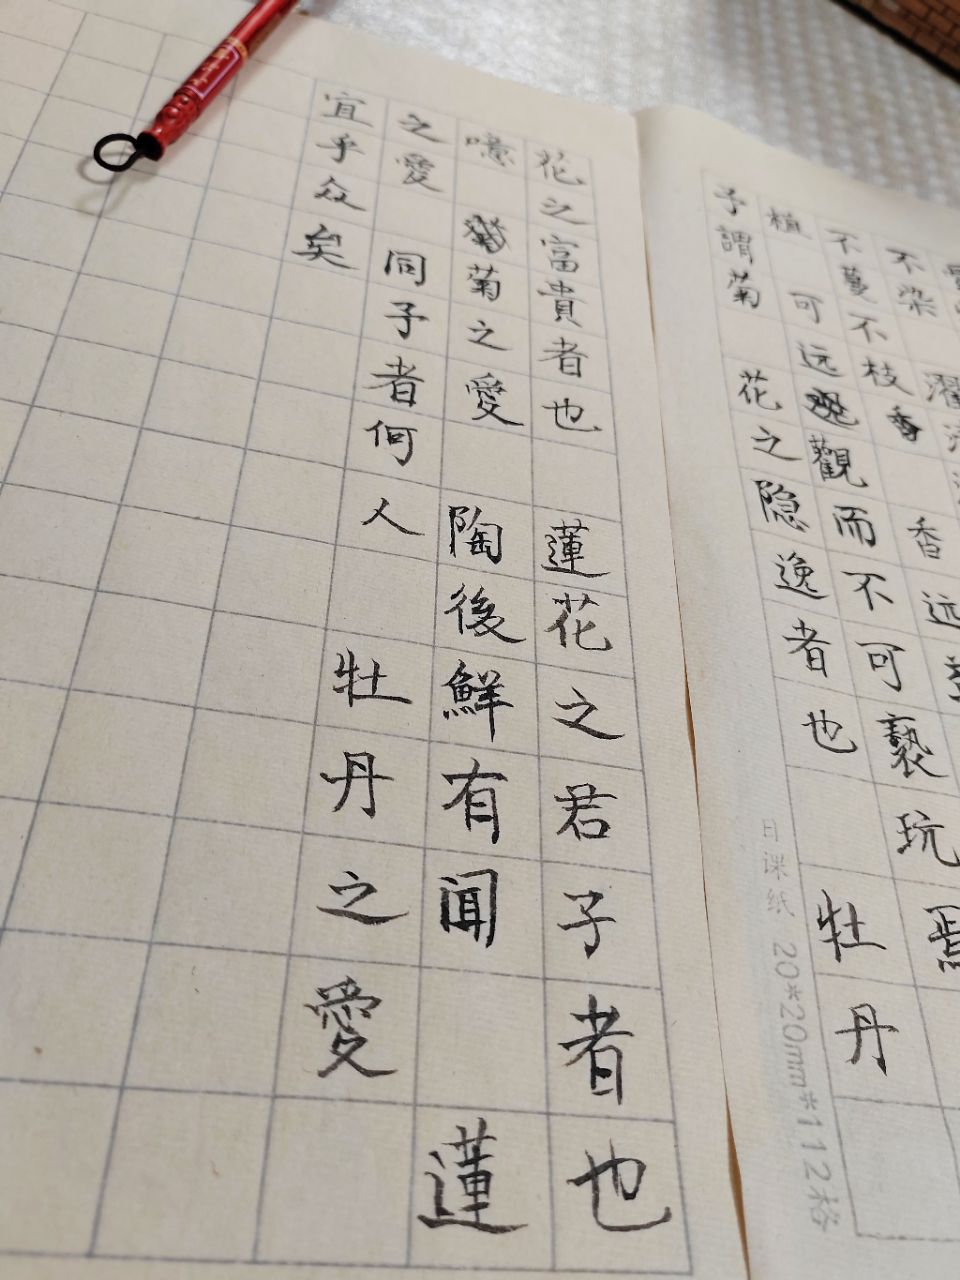 不染 濯
不蔓不枝 香远
植 可远觀而不可褻玩焉
予謂菊 花之隐逸者也 牡丹
花之富貴者也 蓮花之君子者也
噫 菊之愛 陶後鮮有闻 蓮
之愛 同予者何人 牡丹之愛
宜乎众矣
日课纸 20*20mm*112格